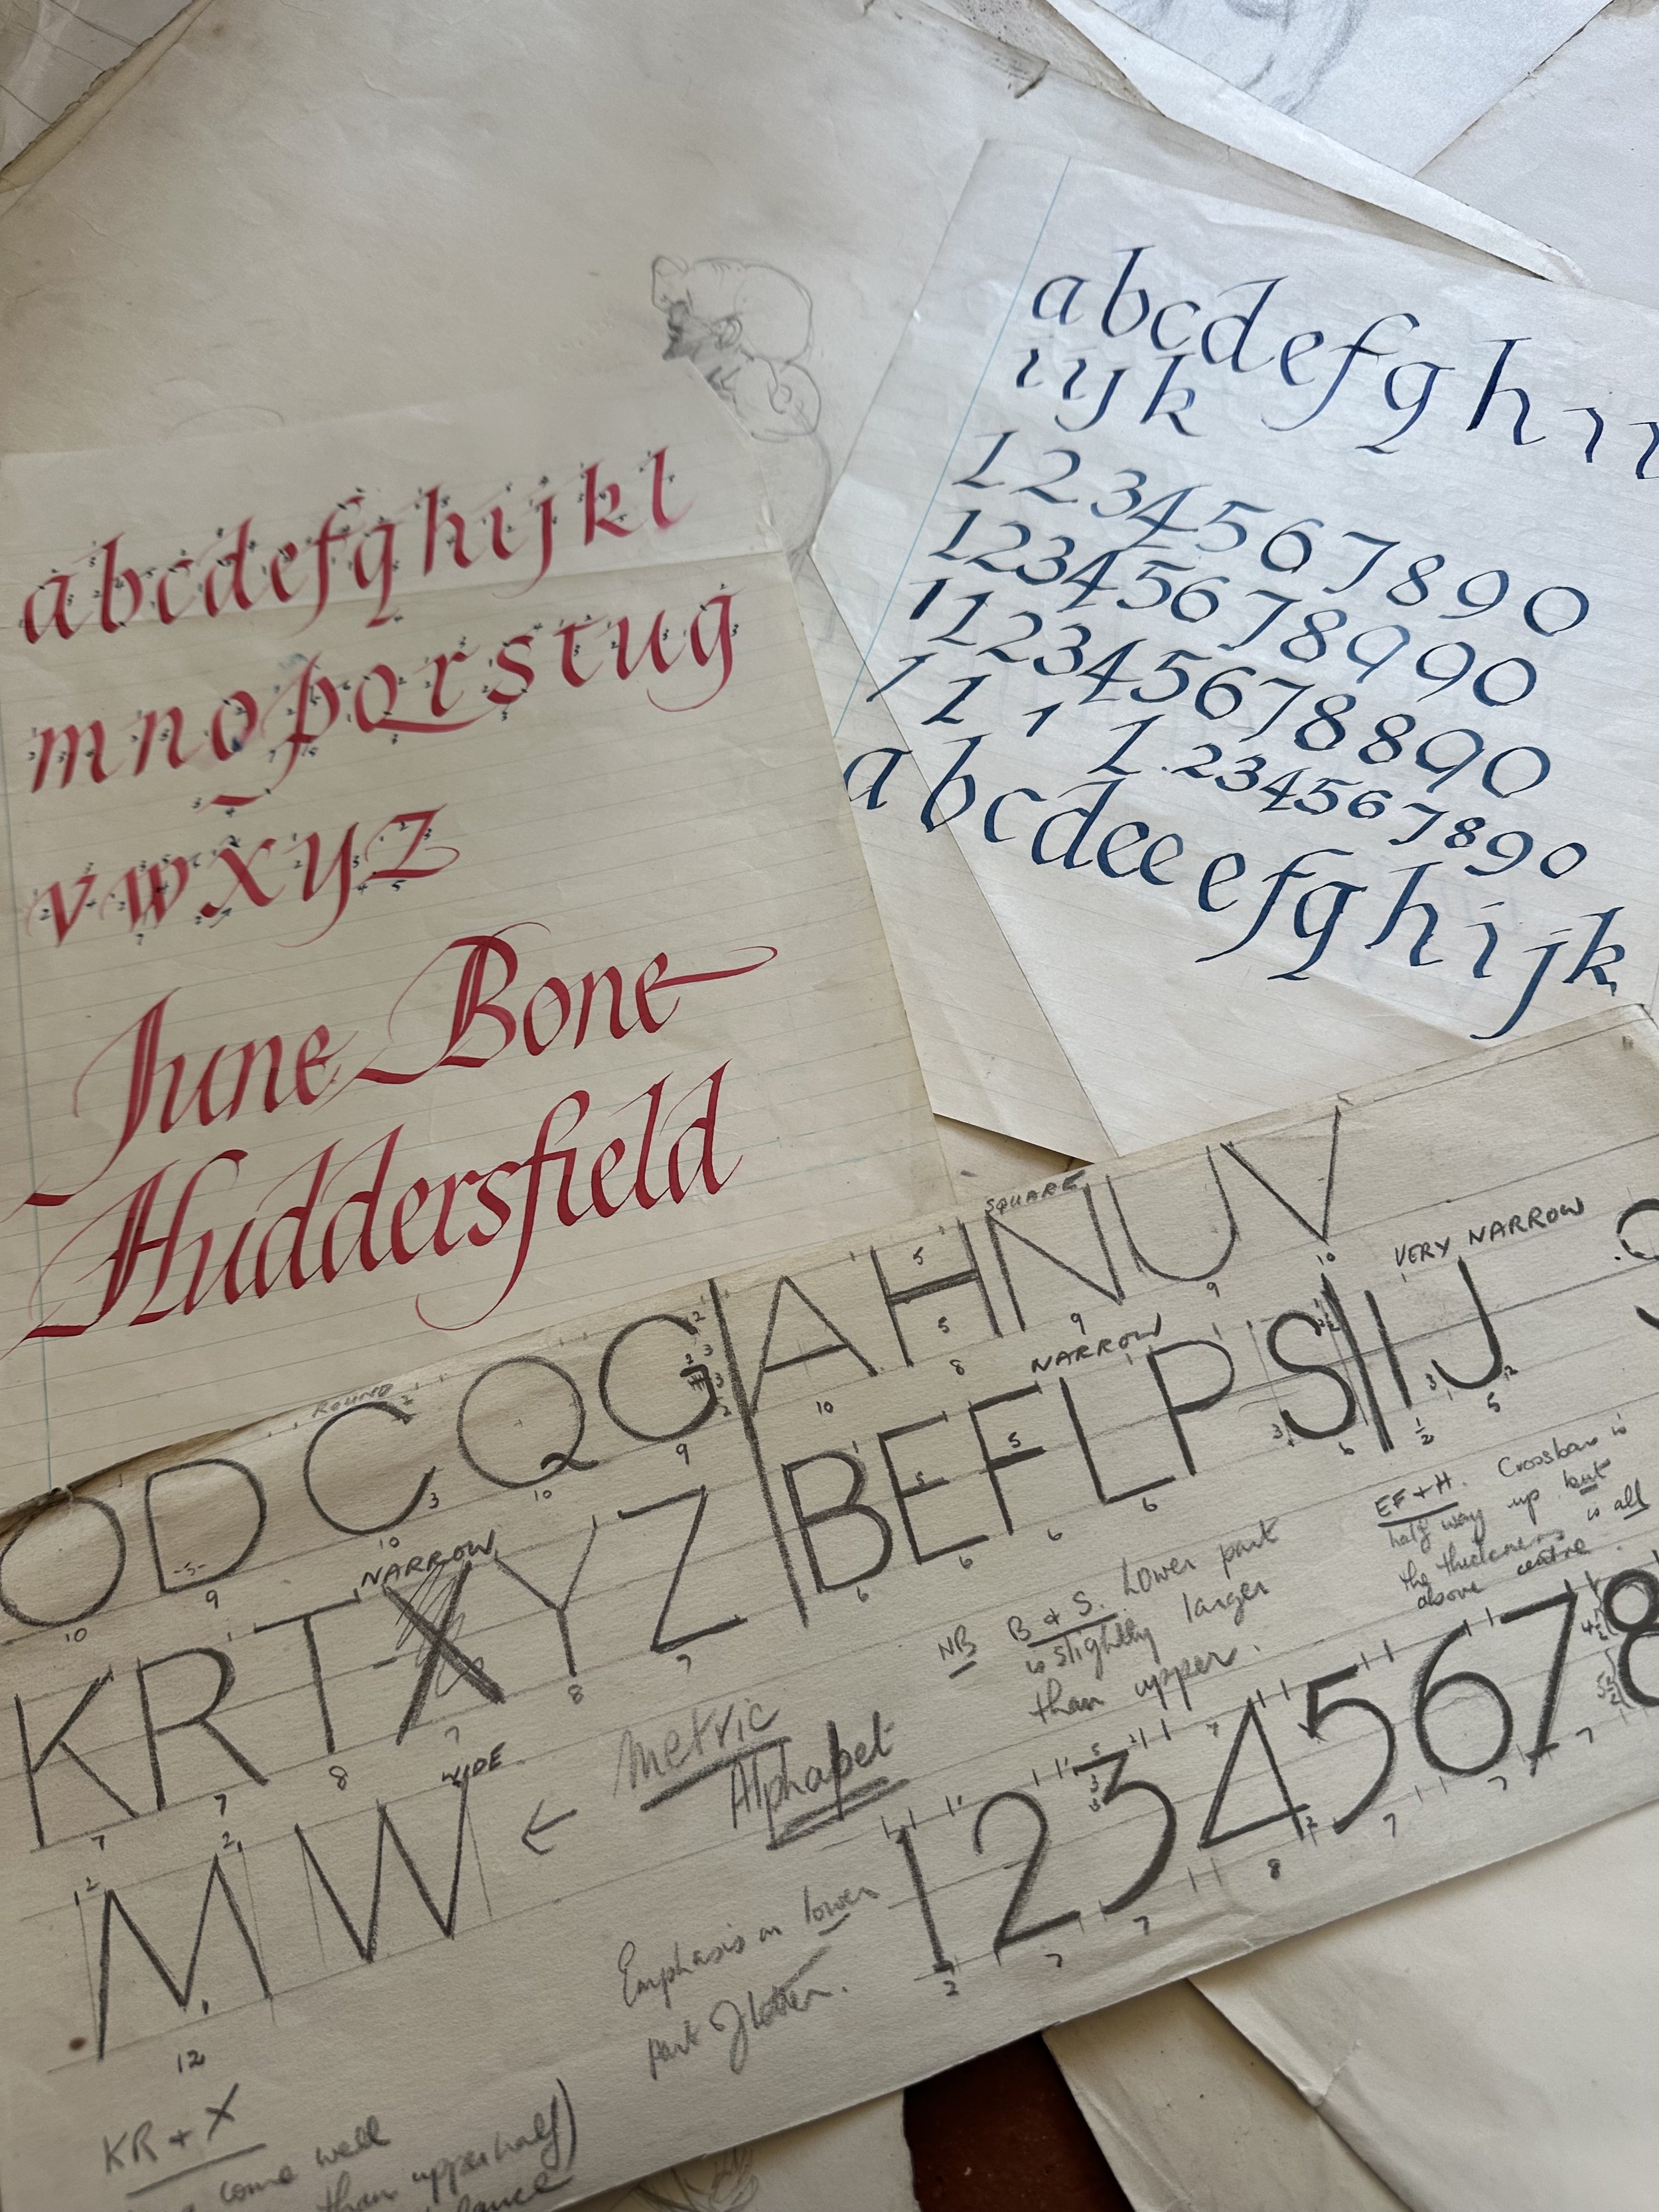 abcdefghijkl
mnopqrstug
vwxyz
June Bone
Huddersfield
abcdefgh
ijk
1234567890
12345678990
112345678890
1 1 1 1. 234567890
abcdeeefghijk
ROUND
SQUARE
O D C Q G A H N U V
10 9 10 10 9 10 8 9 9 10
NARROW
NARROW
VERY NARROW
K R T X Y Z B E F L P S I J
7 7 8 7 8 7 6 6 6 6 6 ½ 5
WIDE
M W ← Metric
Alphabet
12
NB B & S. Lower part
is slightly larger
than upper.
EF + H. Crossbar is
half way up but
the thickness is all
above centre.
12345678
2 7 7 8 7 7 7
Emphasis on lower
part of letter.
KR + X
come well
than upper half)